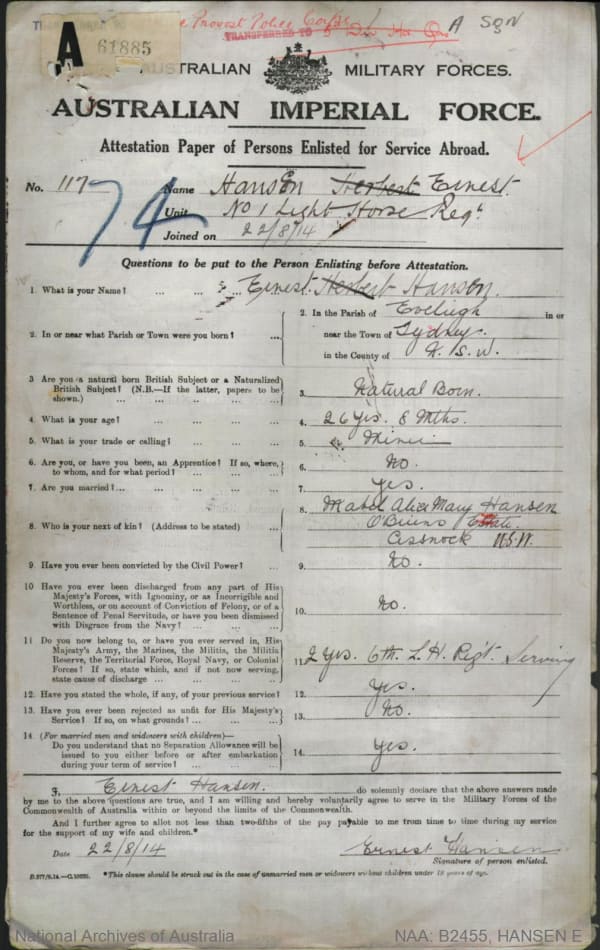 Provost Police Corps
TRANSFERRED TO
A Sqn
A
61885
AUSTRALIAN MILITARY FORCES.
AUSTRALIAN IMPERIAL FORCE.
Attestation Paper of Persons Enlisted for Service Abroad.
No. 117 Name Hansen Herbert Ernest.
74
Unit No 1 Light Horse Regt
Joined on 22/8/14
Questions to be put to the Person Enlisting before Attestation.
1. What is your Name? ... ... Ernest Herbert Hansen.
2. In or near what Parish or Town were you born? ...
2. In the Parish of Eveleigh in or
near the Town of Sydney.
in the County of N.S.W.
3 Are you a natural born British Subject or a Naturalized
British Subject? (N.B.—If the latter, papers to be
shown.) ... ... ... ... ...
3. Natural Born.
4. What is your age? ... ... ...
4. 26 yrs. 8 Mths.
5. What is your trade or calling? ... ... ...
5. Miner
6. Are you, or have you been, an Apprentice? If so, where,
to whom, and for what period? ... ... ...
6. No.
7. Are you married?... ... ... ...
7. Yes.
8. Who is your next of kin? (Address to be stated) ...
8. Mabel Alice Mary Hansen
O'Briens Estate.
Cessnock N.S.W.
9. Have you ever been convicted by the Civil Power? ...
9. No.
10 Have you ever been discharged from any part of His
Majesty's Forces, with Ignominy, or as Incorrigible and
Worthless, or on account of Conviction of Felony, or of a
Sentence of Penal Servitude, or have you been dismissed
with Disgrace from the Navy? ... ... ...
10. No.
11 Do you now belong to, or have you ever served in, His
Majesty's Army, the Marines, the Militia, the Militia
Reserve, the Territorial Force, Royal Navy, or Colonial
Forces? If so, state which, and if not now serving,
state cause of discharge ... ... ...
11. 2 yrs. 6th. L. H. Rig't. Serving
12. Have you stated the whole, if any, of your previous service?
12. Yes.
13. Have you ever been rejected as unfit for His Majesty's
Service? If so, on what grounds? ... ... ...
13. No.
14 (For married men and widowers with children)—
Do you understand that no Separation Allowance will be
issued to you either before or after embarkation
during your term of service? ... ... ...
14. Yes.
I, Ernest Hansen. do solemnly declare that the above answers made
by me to the above questions are true, and I am willing and hereby voluntarily agree to serve in the Military Forces of the
Commonwealth of Australia within or beyond the limits of the Commonwealth.
And I further agree to allot not less than two-fifths of the pay payable to me from time to time during my service
for the support of my wife and children.*
Date 22/8/14 Ernest Hansen
Signature of person enlisted.
*This clause should be struck out in the case of unmarried men or widowers without children under 18 years of age.
National Archives of Australia
NAA: B2455, HANSEN E